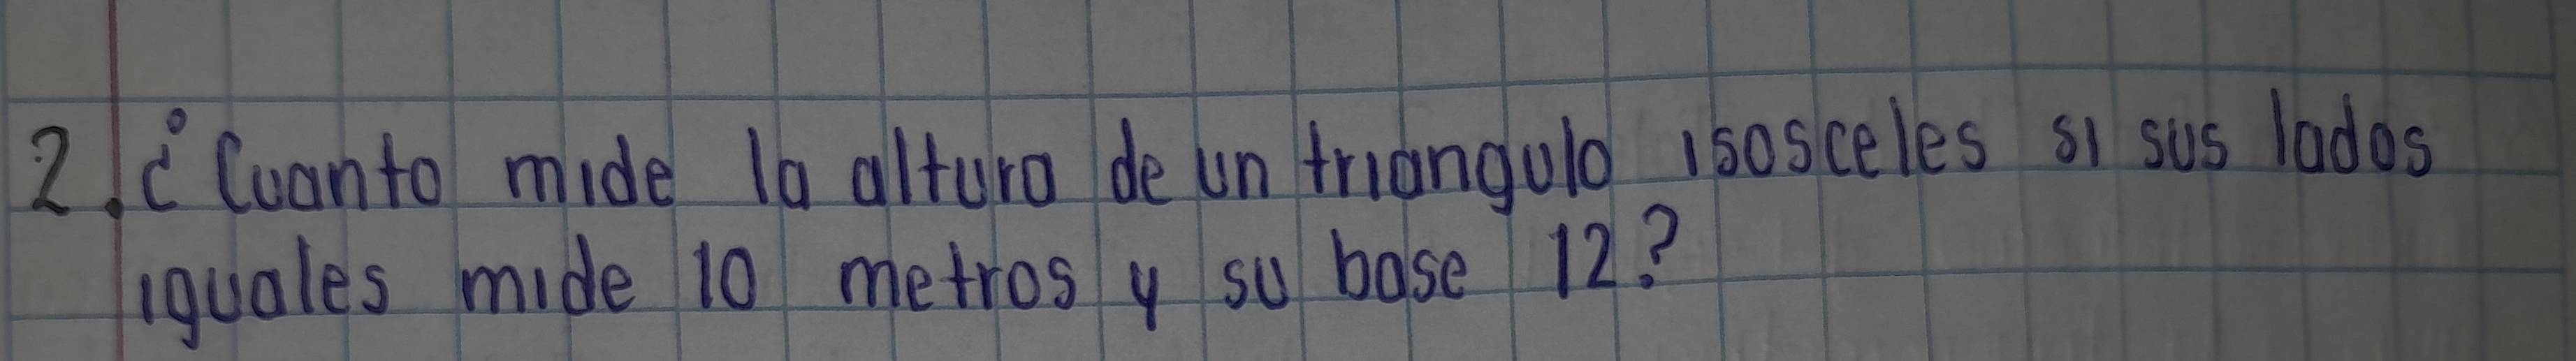 2. ¿Cuanto mide la altura de un triangulo isosceles si sus lados
iguales mide 10 metros y su base 12?